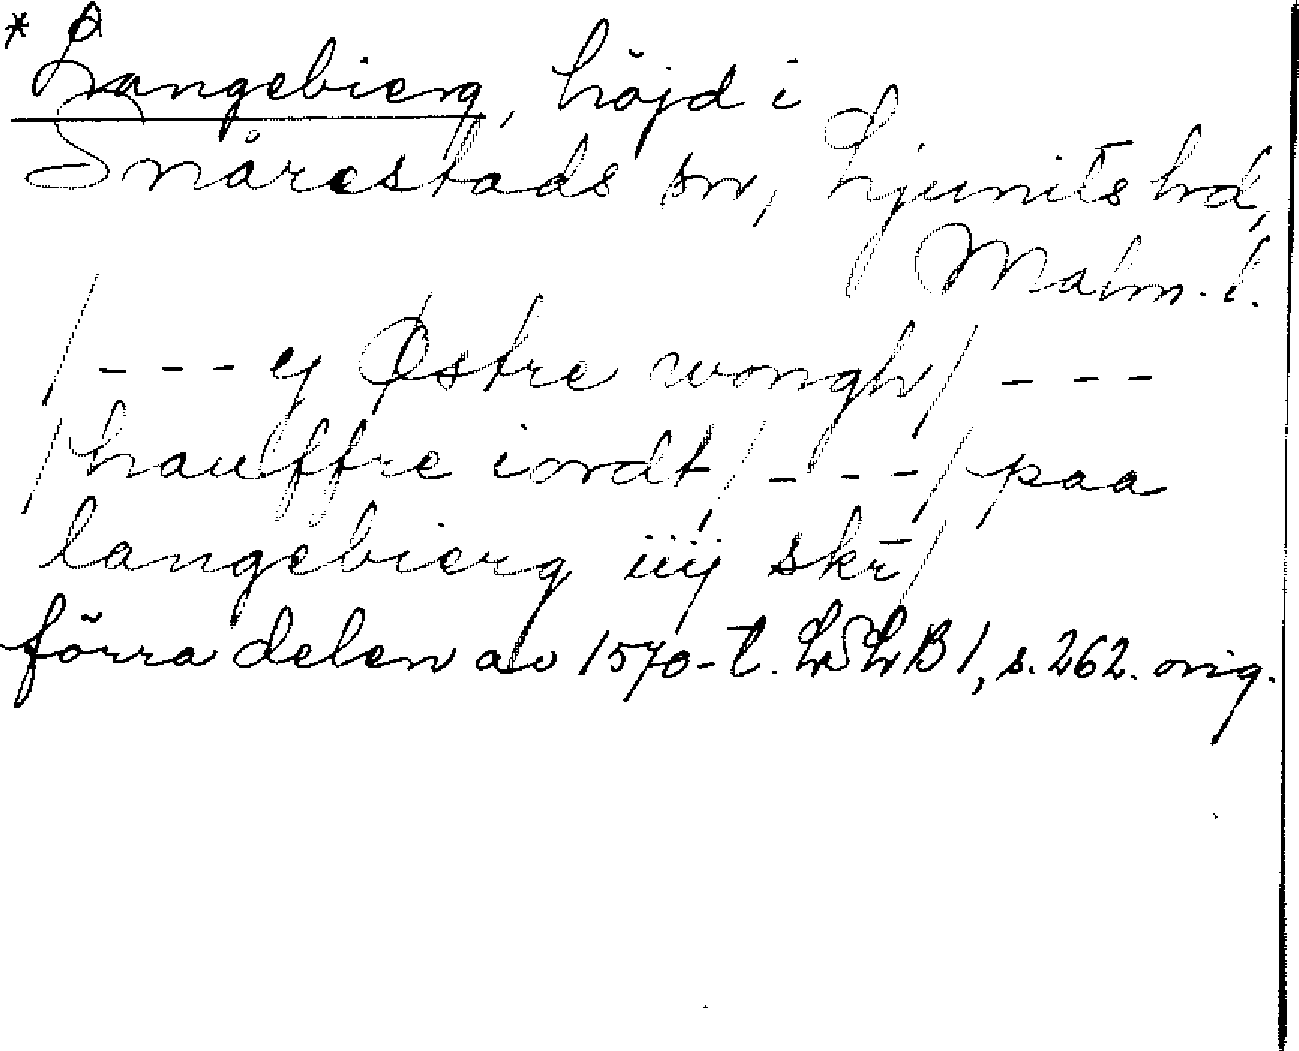 * Langebierg, höjd i
Snårestads sn, Ljunits hd,
Malm. l.
/ - - - ij Østre wongh / - - -
/ hauffre iordt / - - - / paa
langebierg iiij skr̄ /
förra delen av 1570-t. LSLB 1, s. 262. orig.